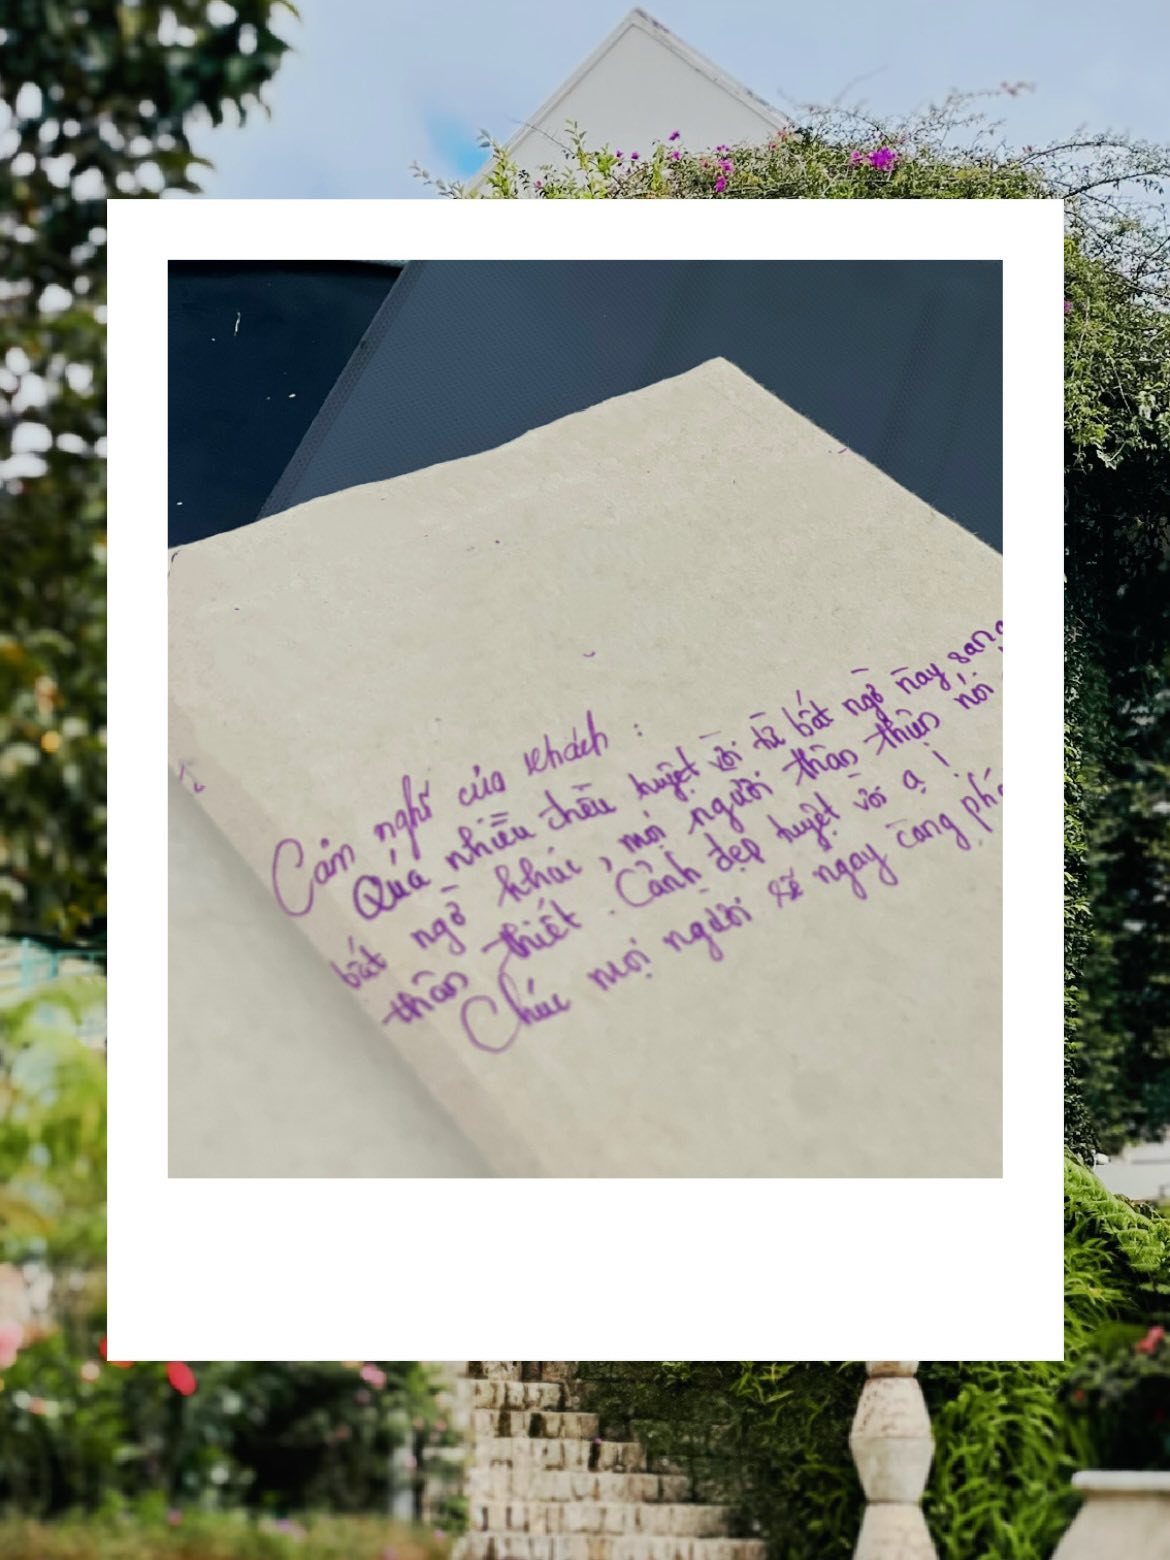 Cảm nghĩ của khách :
Quá nhiều điều tuyệt vời từ bất ngờ này sang
bất ngờ khác, mọi người thân thiện nói
thân thiết. Cảnh đẹp tuyệt vời ạ !
Chúc mọi người sẽ ngày càng phá